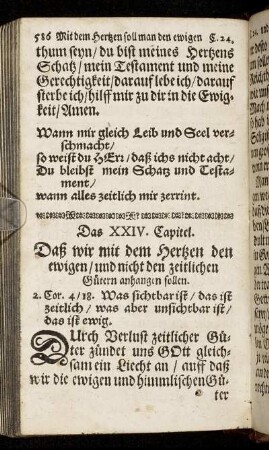 586 Mit dem Hertzen soll man den ewigen C. 24.
thum seyn / du bist meines Hertzens
Schatz / mein Testament und meine
Gerechtigkeit / darauf lebe ich / darauf
sterbe ich / hilff mir zu dir in die Ewig-
keit / Amen.
Wann mir gleich Leib und Seel ver-
schmacht /
so weist du HErr / daß ichs nicht acht /
Du bleibst mein Schatz und Testa-
ment /
wann alles zeitlich mir zerrint.
Das XXIV. Capitel.
Daß wir mit dem Hertzen den
ewigen / und nicht den zeitlichen
Gütern anhangen sollen.
2. Cor. 4 / 18. Was sichtbar ist / das ist
zeitlich / was aber unsichtbar ist /
das ist ewig.
DUrch Verlust zeitlicher Gü-
ter zündet uns GOtt gleich-
sam ein Liecht an / auff daß
wir die ewigen und himmlischen Gü-
ter